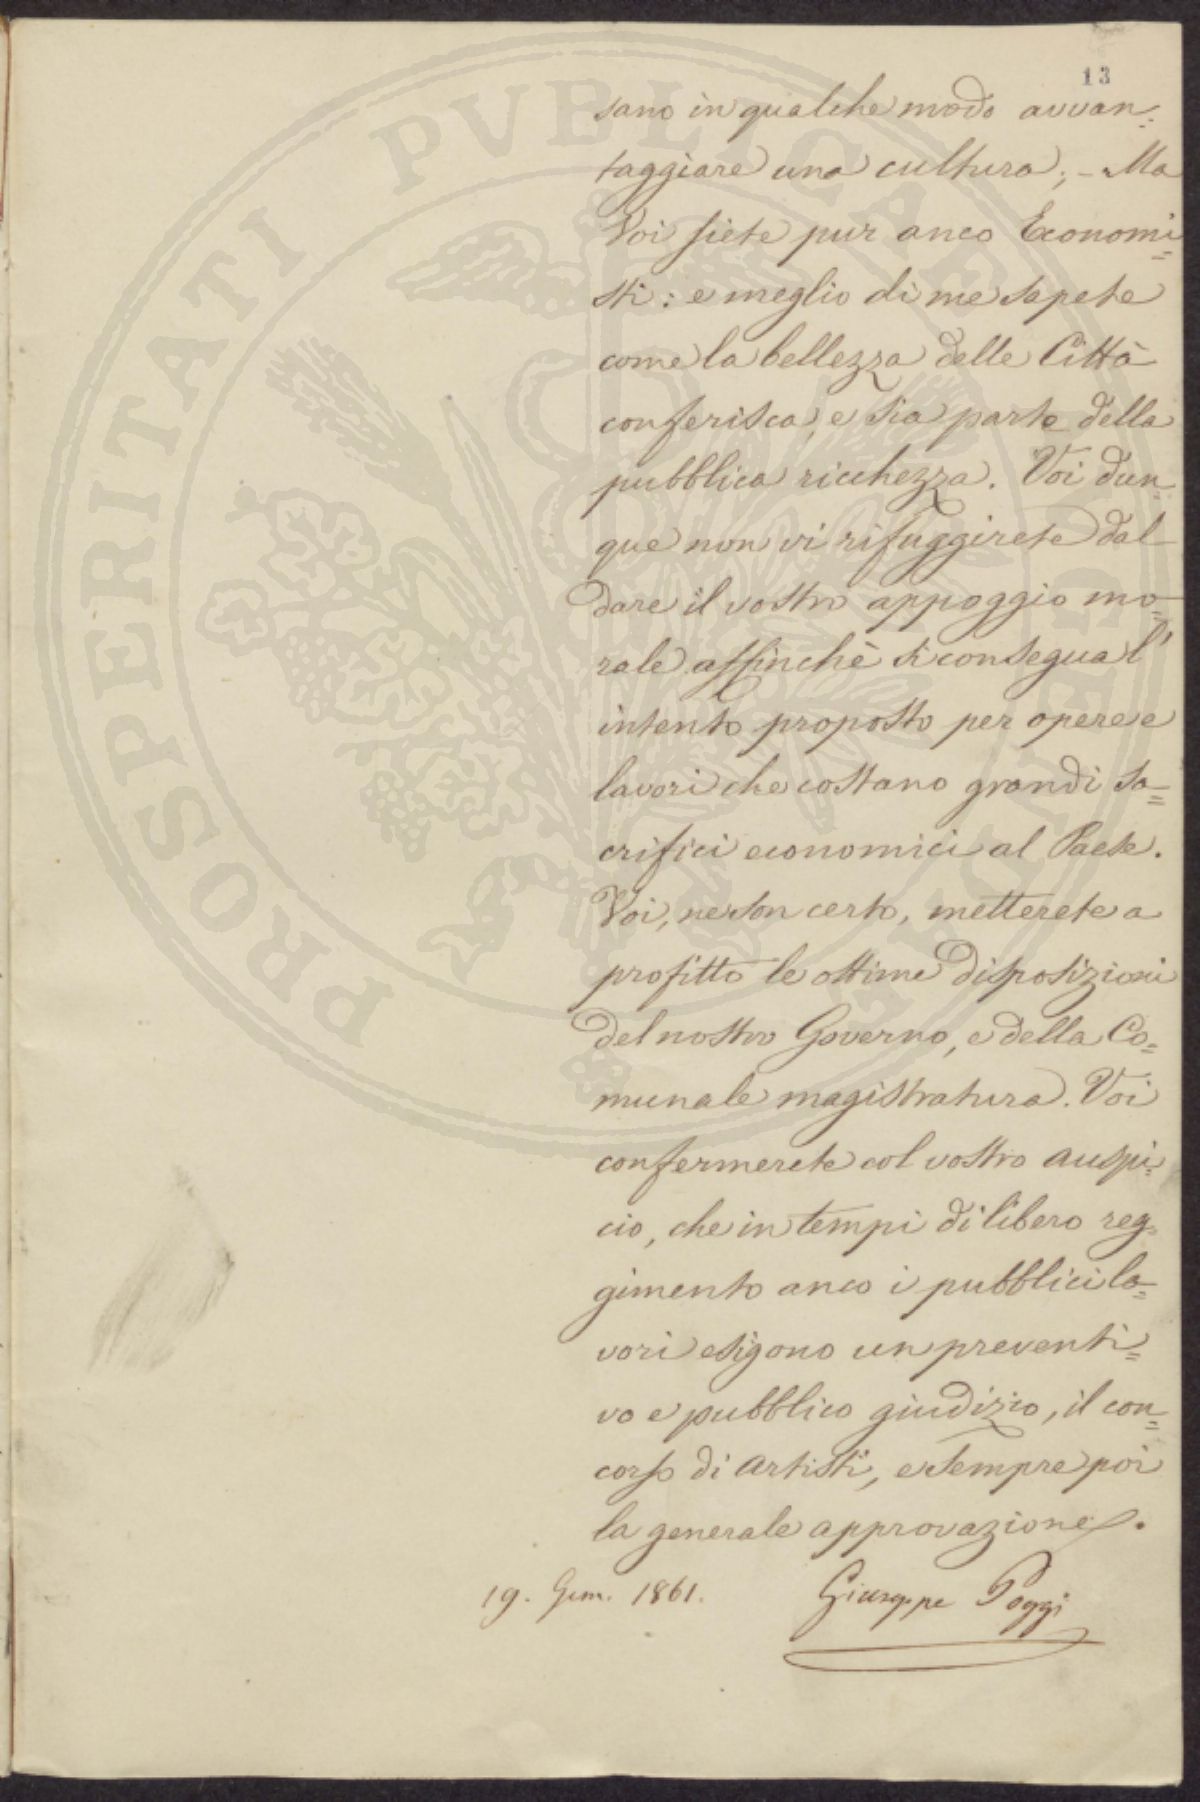 13
sano in qualche modo avvan:
taggiare una cultura; - Ma
Voi siete pur anco Economi=
sti: e meglio di me sapete
come la bellezza delle Città
conferisca, e sia parte della
pubblica ricchezza. Voi dun=
que non vi rifuggirete dal
dare il vostro appoggio mo=
rale affinchè si consegua l'
intento proposto per opere e
lavori che costano grandi sa=
crifici economici al Paese.
Voi, ne son certo, metterete a
profitto le ottime disposizioni
del nostro Governo, e della Co=
munale magistratura. Voi
confermerete col vostro auspi=
cio, che in tempi di libero reg=
gimento anco i pubblici la=
vori esigono un preventi=
vo e pubblico giudizio, il con=
corso di artisti, e sempre poi
la generale approvazione.
19. Genn. 1861. Giuseppe Poggi
PROSPERITATI PUBLICAE AUGENDAE